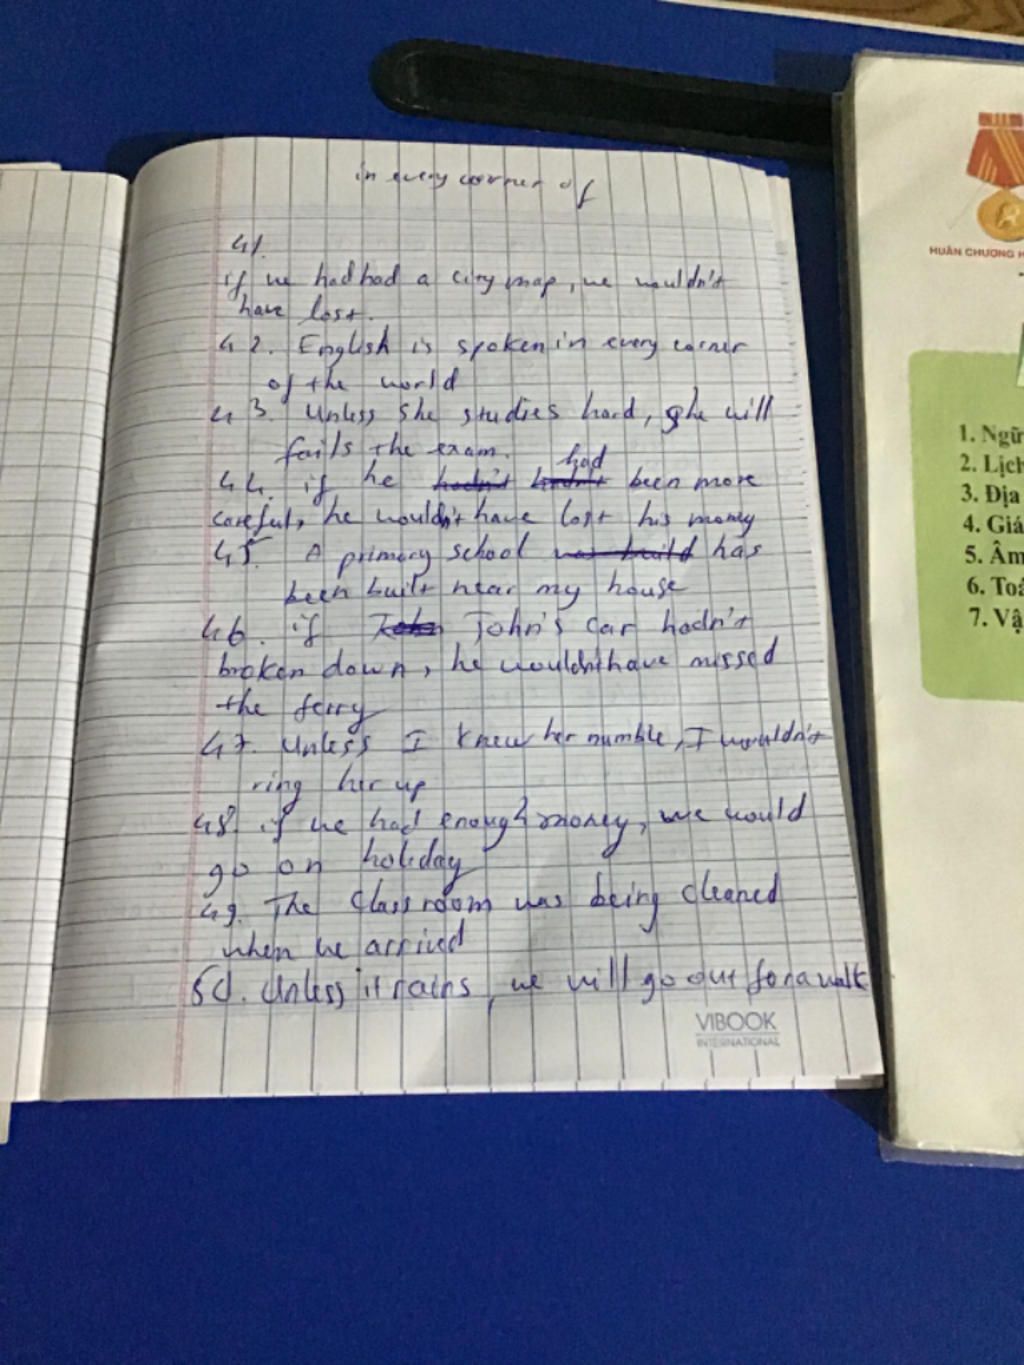 in every corner of
41.
if we had had a city map, we wouldn't
have lost.
42. English is spoken in every corner
of the world
43. Unless she studies hard, she will
fails the exam.
had
44. if he hadn't hadn't been more
careful, he wouldn't have lost his money
45. A primary school was build has
been built near my house
46. if John John's car hadn't
broken down, he wouldn't have missed
the ferry
47. Unless I knew her numble, I wouldn't
ring her up
48. if we had enough money, we would
go on holiday
49. The classroom was being cleaned
when we arrived
50. Unless it rains, we will go out for a walk
VIBOOK
INTERNATIONAL
HUÂN CHƯƠNG H
1. Ngữ
2. Lịch
3. Địa
4. Giá
5. Âm
6. Toá
7. Vậ